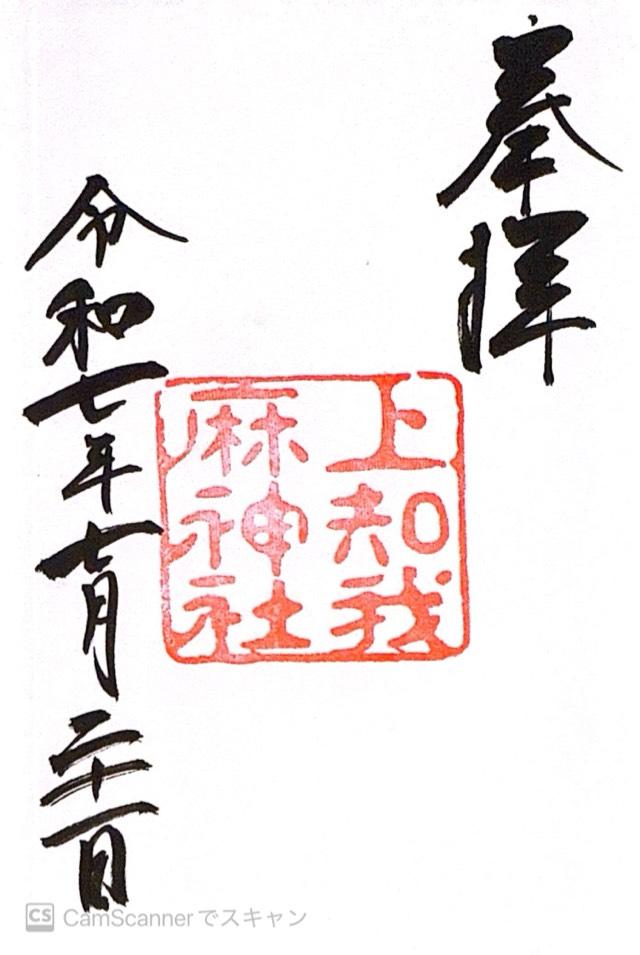 奉拝
上知我
麻神社
令和七年七月二十一日
CS CamScannerでスキャン